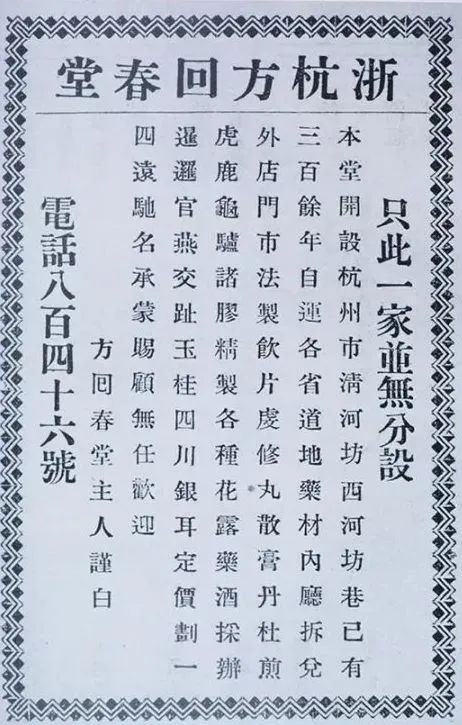 浙杭方回春堂
只此一家並無分設
本堂開設杭州市清河坊西河坊巷已有
三百餘年自運各省道地藥材內廳拆兌
外店門市法製飲片虔修丸散膏丹杜煎
虎鹿龜驢諸膠精製各種花露藥酒採辦
暹邏官燕交趾玉桂四川銀耳定價劃一
四遠馳名承蒙賜顧無任歡迎
方回春堂主人謹白
電話八百四十六號